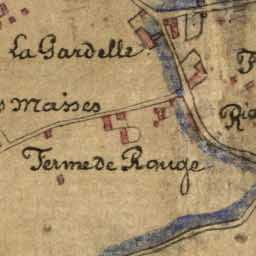 La Gardelle
Masses
Ferme de Rouge